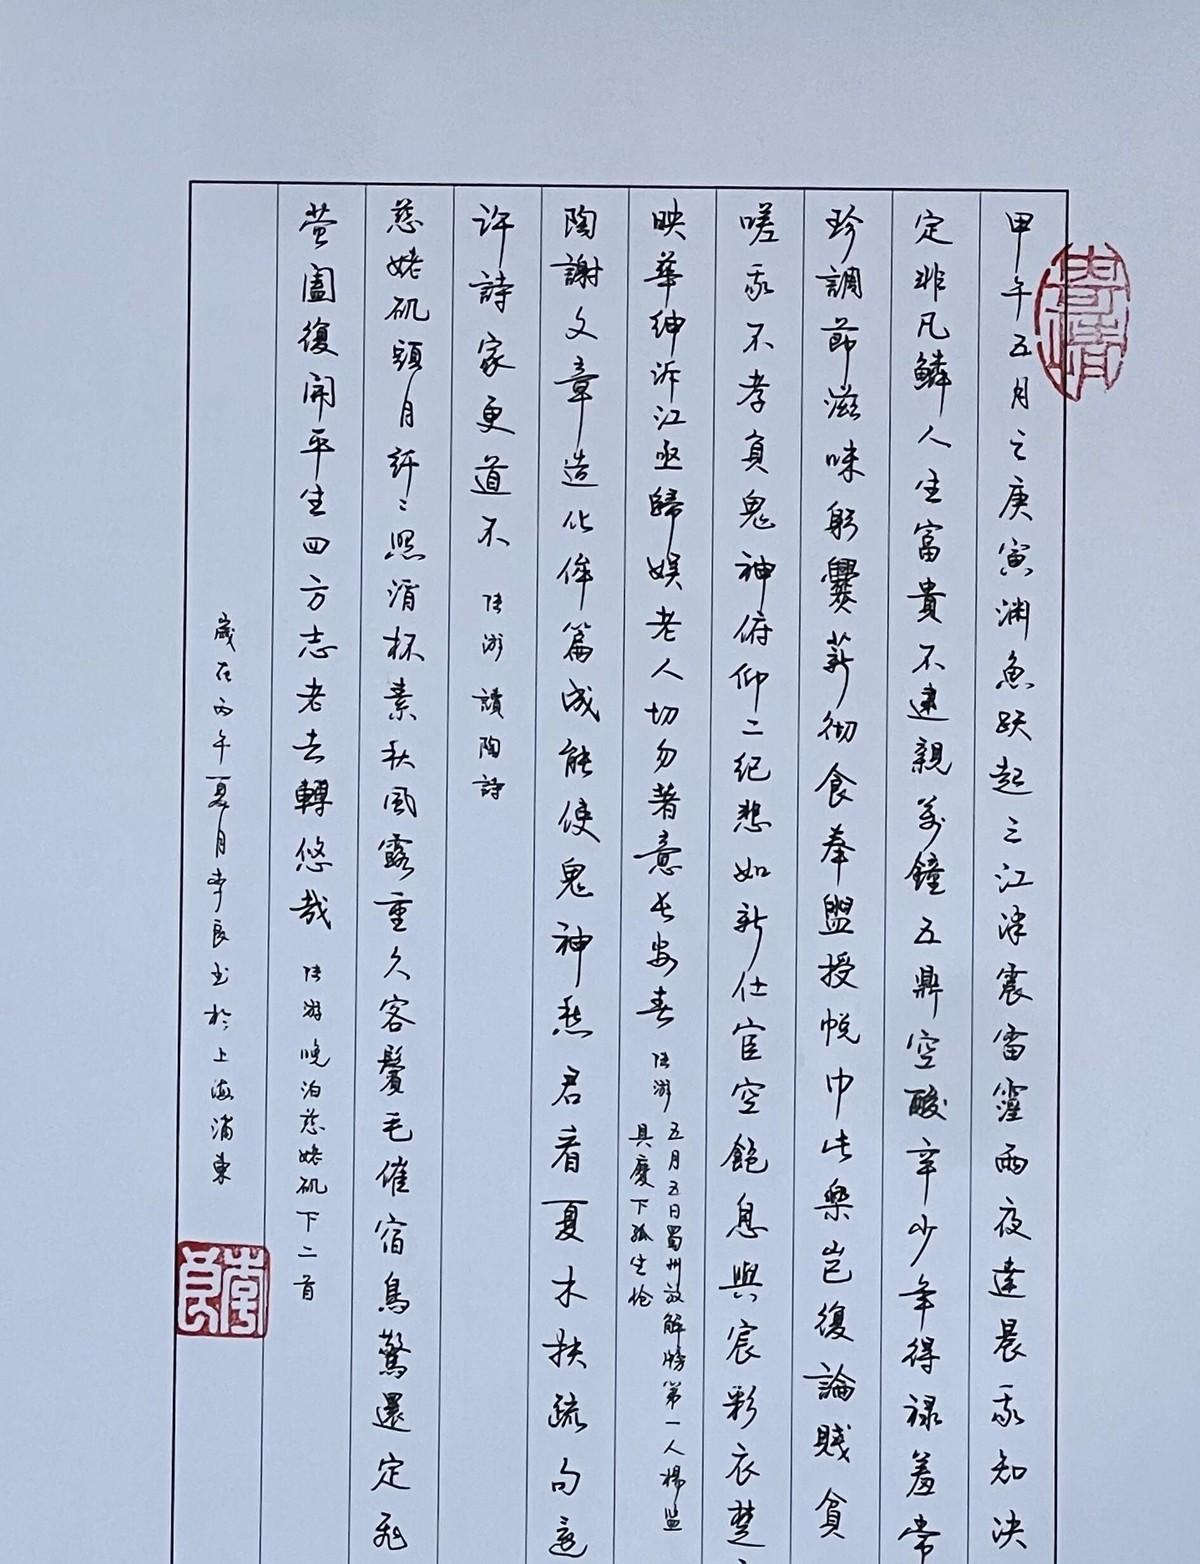 甲午五月之庚寅渊魚跃起三江津震雷霪雨夜達晨我知决
定非凡鱗人生富貴不逮親萬鐘五鼎空酸辛少年得禄羞常
珍調節滋味躬爨薪彻食奉盥授帨巾此樂岂復論賤貧
嗟我不孝負鬼神俯仰二纪悲如新仕宦空飽息與宸彩衣楚
映華绅泝江亟歸娱老人切勿著意长安春 陆游 五月五日蜀州放解牓第一人楊鉴
具慶下孤生怆
陶謝文章造化侔篇成能使鬼神愁君看夏木扶疏句還
许詩家更道不 陆游 讀陶詩
慈姥矶頭月纤纤照酒杯素秋風露重久客鬢毛催宿鳥驚還定飛
萤闔復開平生四方志老去轉悠哉 陆游 晚泊慈姥矶下二首
歲在丙午夏月李良书於上海浦東
李良